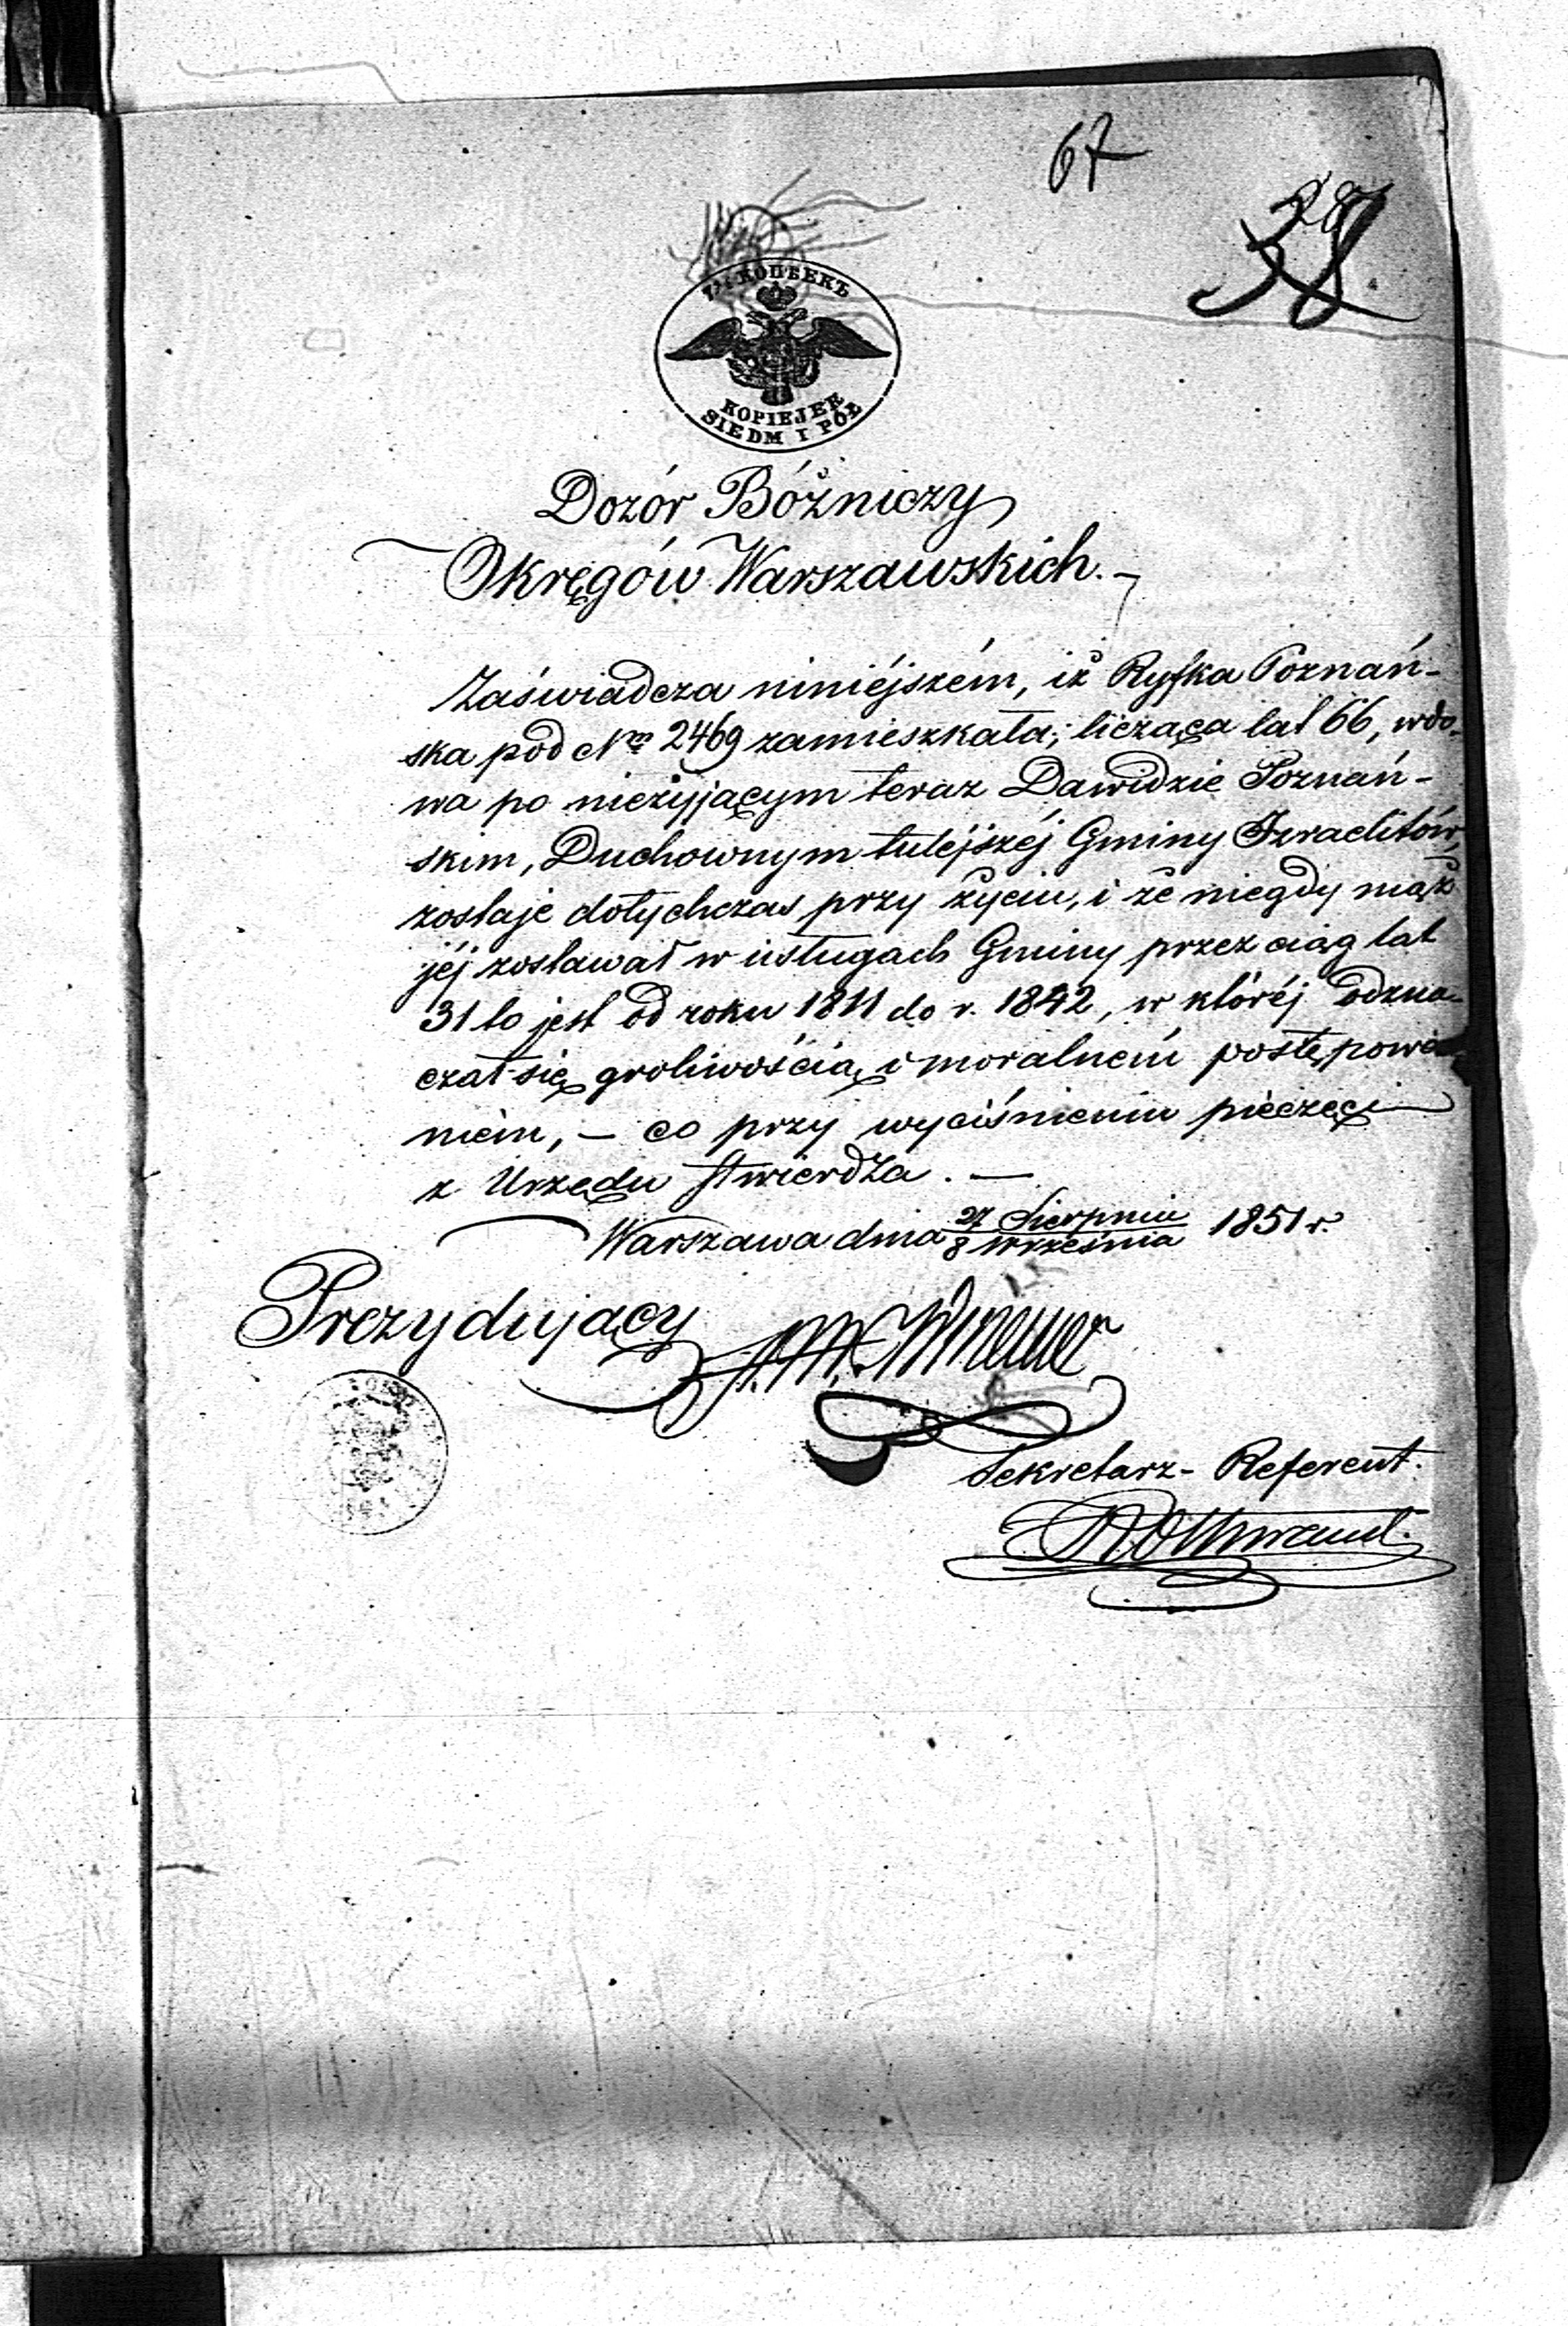 67
38
7½ КОПѢЕКЪ
KOPIEJEK
SIEDM I PÓŁ
Dozór Bóżniczy
Okręgów Warszawskich. –
Zaświadcza niniéjszém, iż Ryfka Poznań-
ska pod Nrm 2469 zamieszkała, licząca lat 66, wdo-
wa po nieżyjącym teraz Dawidzie Poznań-
skim, Duchownym tutéjszéj Gminy Izraelitów,
zostaje dotychczas przy życiu, i że niegdy mąż
jéj zostawał w usługach Gminy przez ciąg lat
31 to jest od roku 1811 do r. 1842, w któréj odzna-
czał się gorliwością i moralném postępowa-
niem, – co przy wyciśnieniu pieczęci
z Urzędu stwierdza. —
Warszawa dnia 27 Sierpnia / 8 Września 1851 r.
Prezydujący
Sekretarz - Referent.
Rothwand.